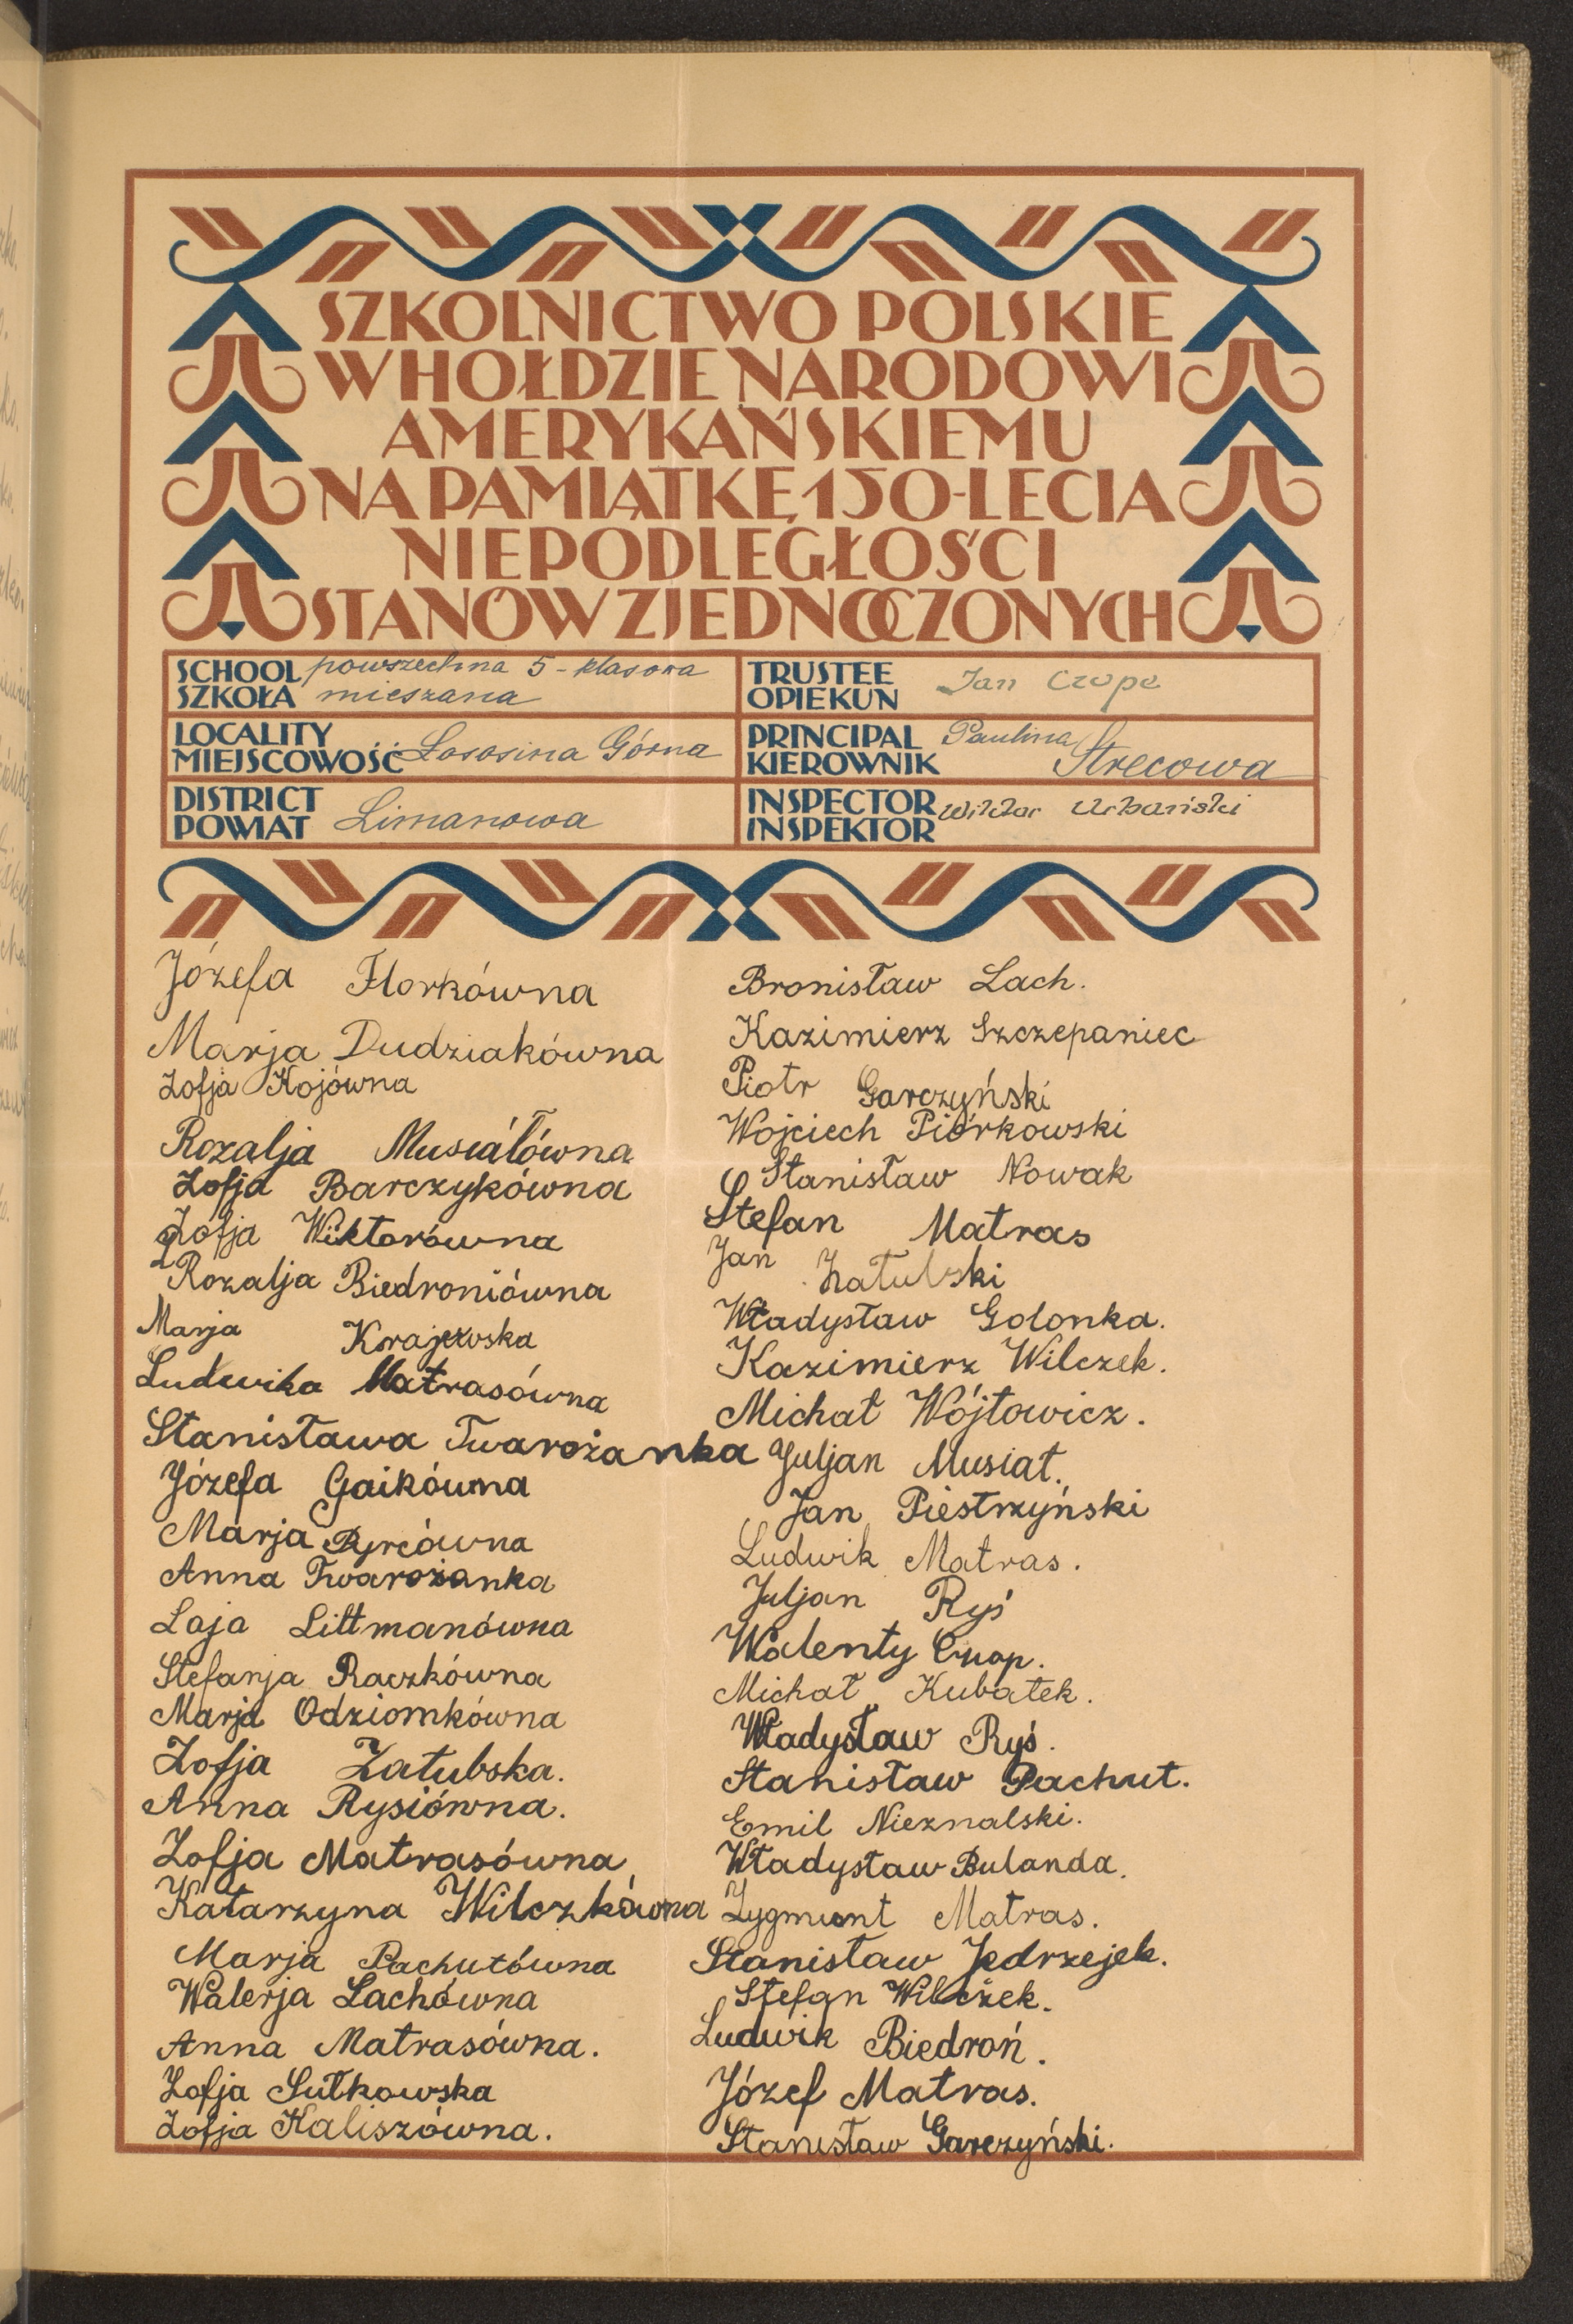 SZKOLNICTWO POLSKIE
W HOŁDZIE NARODOWI
AMERYKAŃSKIEMU
NA PAMIĄTKĘ 150-LECIA
NIEPODLEGŁOŚCI
STANÓW ZJEDNOCZONYCH
SCHOOL powszechna 5-klasowa
SZKOŁA mieszana
TRUSTEE
OPIEKUN Jan Czope
LOCALITY
MIEJSCOWOŚĆ Łososina Górna
PRINCIPAL Paulina
KIEROWNIK Strecowa
DISTRICT
POWIAT Limanowa
INSPECTOR Wiktor Urbański
INSPEKTOR
Józefa Florkówna
Marja Dudziakówna
Zofja Kojówna
Rozalja Musiałówna
Zofja Barczykówna
Zofja Wiktorówna
Rozalja Biedroniówna
Marja Korajewska
Ludwika Matrasówna
Stanisława Twarożanka
Józefa Gaikówna
Marja Pyrcówna
Anna Twarożanka
Laja Littmanówna
Stefanja Raczkówna
Marja Odziomkówna
Zofja Załubska.
Anna Rysiówna.
Zofja Matrasówna
Katarzyna Wilczkówna
Marja Pachutówna
Walerja Lachówna
Anna Matrasówna.
Zofja Sułkowska
Zofja Kaliszówna.
Bronisław Lach.
Kazimierz Szczepaniec
Piotr Garczyński
Wojciech Piórkowski
Stanisław Nowak
Stefan Matras
Jan Załubski
Władysław Golonka.
Kazimierz Wilczek.
Michał Wójtowicz.
Juljan Musiał.
Jan Piestrzyński
Ludwik Matras.
Juljan Ryś
Walenty Czop.
Michał Kubatek.
Władysław Ryś.
Stanisław Pachut.
Emil Nieznalski.
Władysław Bulanda.
Zygmunt Matras.
Stanisław Jędrzejek.
Stefan Wilczek.
Ludwik Biedroń.
Józef Matras.
Stanisław Garczyński.